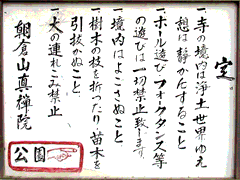 定
一、寺の境内は浄土世界ゆえ
憩は静かたすること
一、ボール遊び フォークダンス等
の遊びは一切禁止致します。
一、境内はよごさぬこと、
一、樹木の枝を折ったり苗木を
引抜かぬこと、
一、犬の連れこみ禁止
朝倉山真禅院
公園